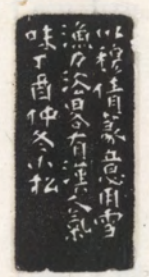 以穆倩篆意用雪
漁刀法畧有漢人氣
味丁酉仲冬小松